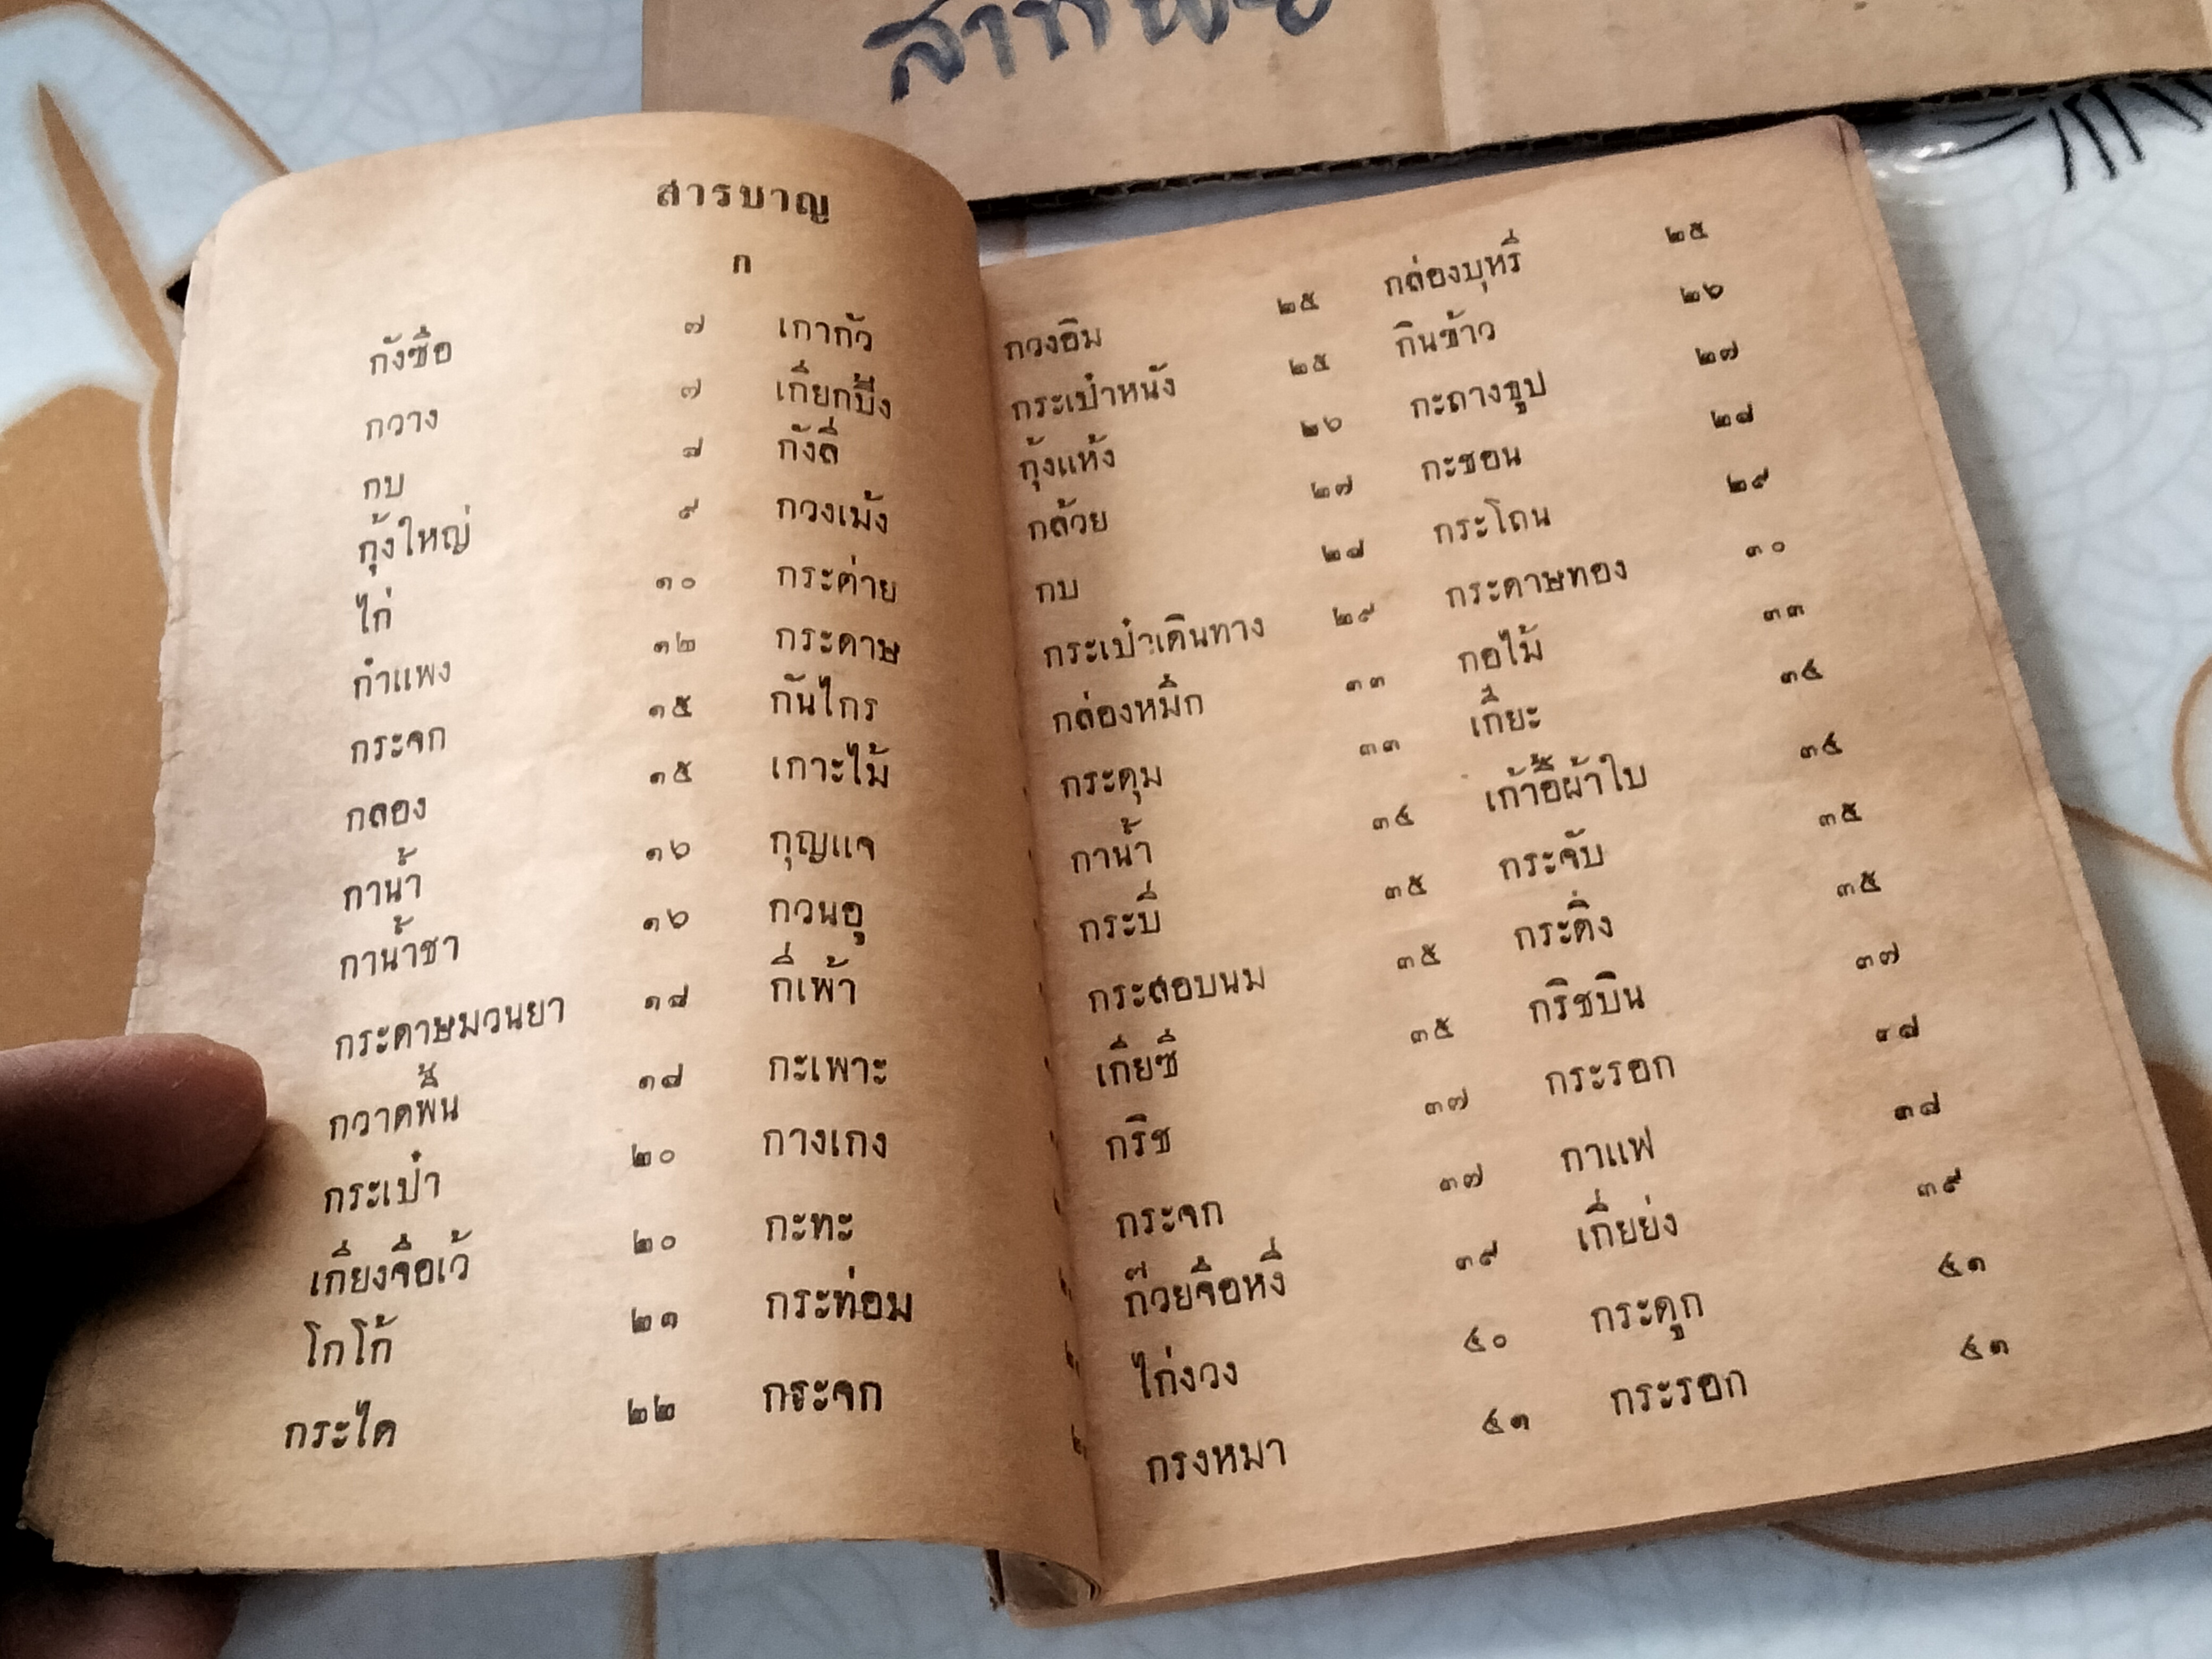 สารบาญ
ก
กังซือ ๗ เกากัว
กวาง ๗ เกี่ยกบั๊ง
กบ ๘ กังลี่
กุ้งใหญ่ ๙ กวงเม้ง
ไก่ ๑๐ กระต่าย
กำแพง ๑๒ กระดาษ
กระจก ๑๕ กันไกร
กลอง ๑๕ เกาะไม้
กาน้ำ ๑๖ กุญแจ
กาน้ำชา ๑๖ กวนอู
กระดาษมวนยา ๑๘ กี่เพ้า
กวาดพื้น ๑๘ กะเพาะ
กระเป๋า ๒๐ กางเกง
เกี่ยงจือเว้ ๒๐ กะทะ
โกโก้ ๒๑ กระท่อม
กระได ๒๒ กระจก
กวงอิม ๒๕ กล่องบุหรี่ ๒๕
กระเป๋าหนัง ๒๕ กินข้าว ๒๖
กุ้งแห้ง ๒๖ กะถางธูป ๒๗
กล้วย ๒๗ กะชอน ๒๘
กบ ๒๘ กระโถน ๒๙
กระเป๋าเดินทาง ๒๙ กระดาษทอง ๓๐
กล่องหมึก ๓๓ กอไม้ ๓๓
กระดุม ๓๓ เกี๊ยะ ๓๔
กาน้ำ ๓๔ เก้าอี้ผ้าใบ ๓๔
กระบี่ ๓๕ กระจับ ๓๕
กระสอบนม ๓๕ กระดิ่ง ๓๕
เกี่ยซี ๓๕ กริชบิน ๓๗
กริช ๓๗ กระรอก ๓๘
กระจก ๓๗ กาแฟ ๓๘
ก๊วยจือหงี่ ๓๙ เกี่ยย่ง ๓๙
ไก่งวง ๔๐ กระดูก ๔๑
กรงหมา ๔๑ กระรอก ๔๑